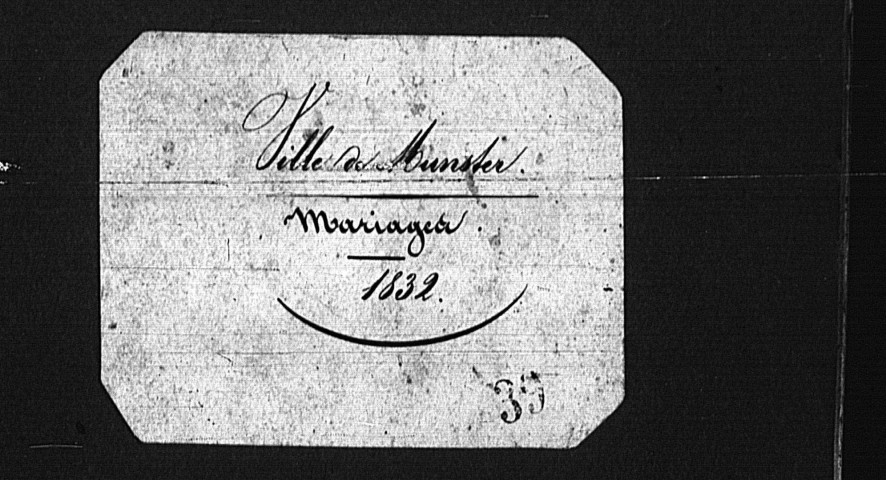 Ville de Munster.
Mariages.
1832.
39